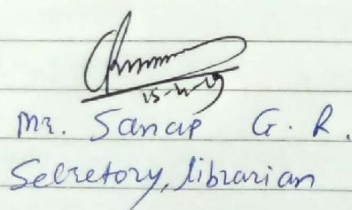 15-4-19
Mr. Sanap G. R.
Secretory, librarian